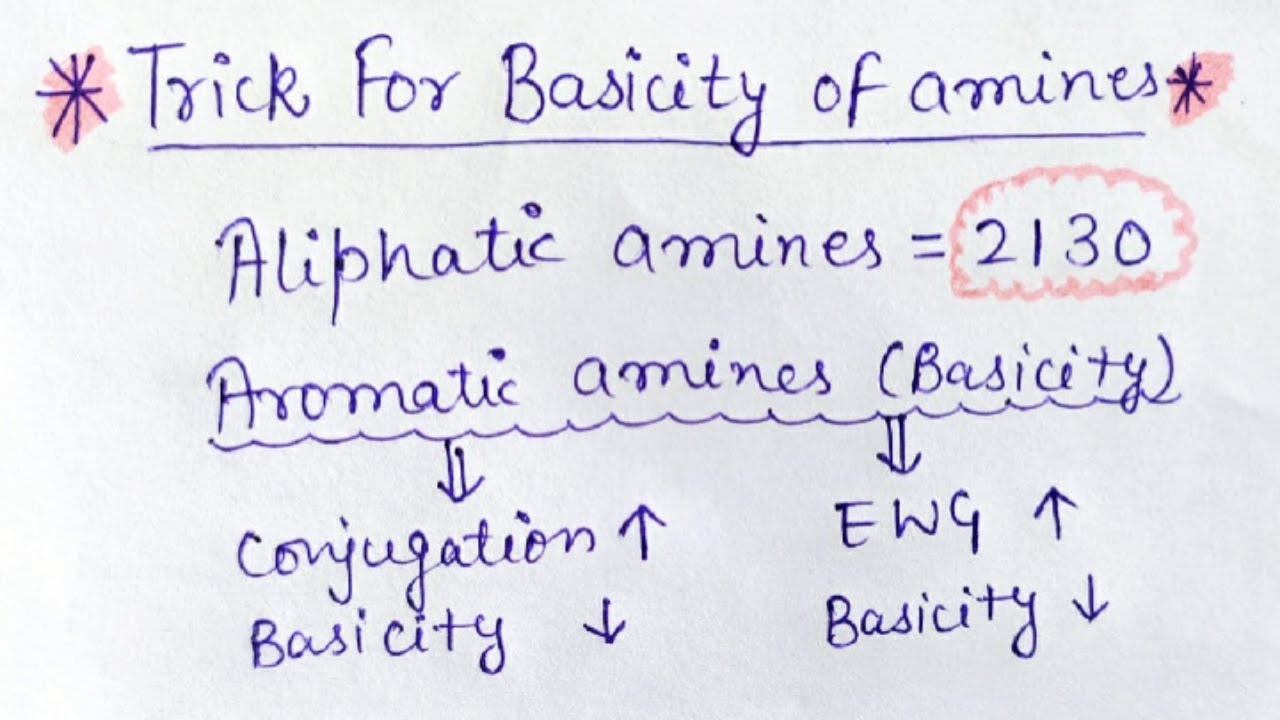 * Trick For Basicity of amines *
Aliphatic amines = 2130
Aromatic amines (Basicity)
⇓ ⇓
Conjugation ↑ EWG ↑
Basicity ↓ Basicity ↓